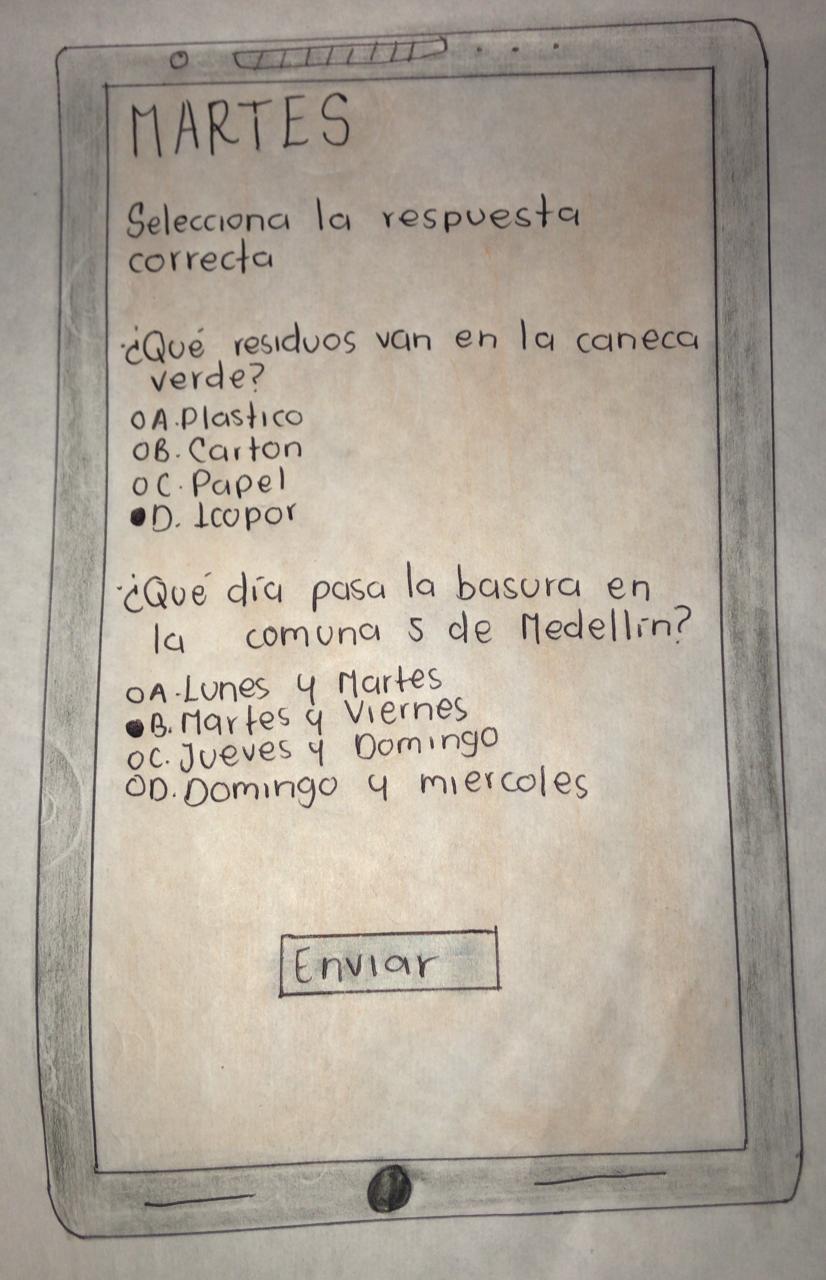 MARTES
Selecciona la respuesta
correcta
·¿Qué residuos van en la caneca
verde?
O A. Plastico
O B. Carton
O C. Papel
● D. Icopor
·¿Qué día pasa la basura en
la comuna 5 de Medellín?
O A. Lunes y Martes
● B. Martes y Viernes
O C. Jueves y Domingo
O D. Domingo y miercoles
Enviar